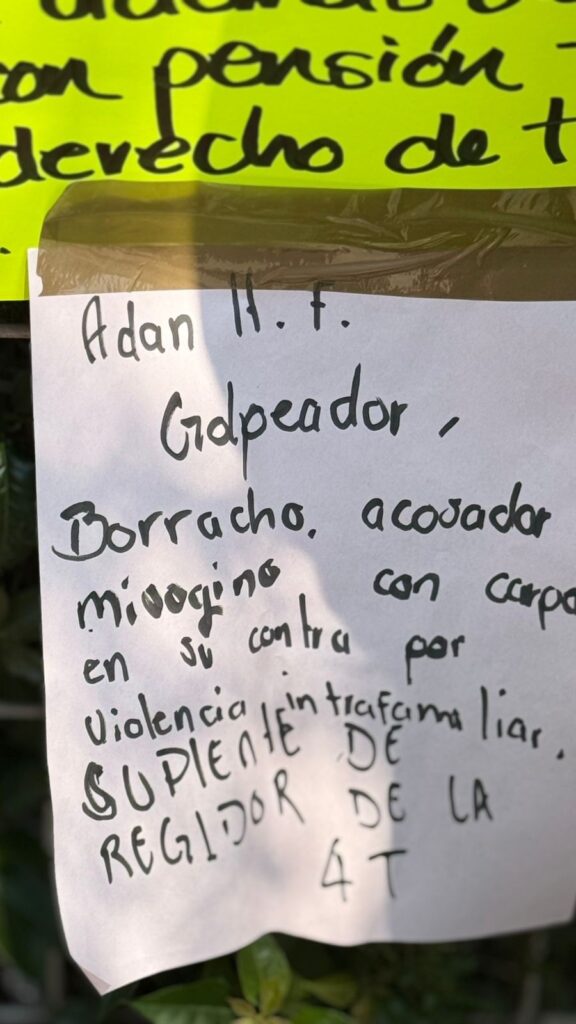 con pensión
derecho de t
Adan H. F.
Golpeador,
Borracho, acosador
misogino con carpe
en su contra por
violencia intrafamiliar.
SUPLENTE DE
REGIDOR DE LA
4T